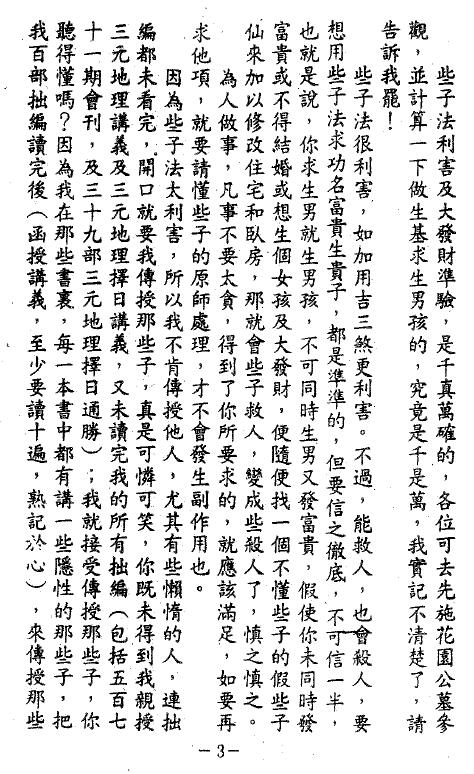 些子法利害及大發財準驗，是千真萬確的，各位可去先施花園公墓參
觀，並計算一下做生基求生男孩的，究竟是千是萬，我實記不清楚了，請
告訴我罷！
些子法很利害，如加用吉三煞更利害。不過，能救人，也會殺人，要
想用些子法求功名富貴生貴子，都是準準的，但要信之徹底，不可信一半，
也就是說，你求生男就生男孩，不可同時生男又發富貴，假使你未同時發
富貴或不得結婚或想生個女孩及大發財，便隨便找一個不懂些子的假些子
仙來加以修改住宅和臥房，那就會些子救人，變成些殺人了，慎之慎之。
為人做事，凡事不要太貪，得到了你所要求的，就應該滿足，如要再
求他項，就要請懂些子的原師處理，才不會發生副作用也。
因為些子法太利害，所以我不肯傳授他人，尤其有些懶惰的人，連拙
編都未看完，開口就要我傳授那些子，真是可憐可笑，你既未得到我親授
三元地理講義及三元地理擇日講義，又未讀完我的所有拙編（包括五百七
十一期會刊，及三十九部三元地理擇日通勝）；我就接受傳授那些子，你
聽得懂嗎？因為我在那些書裏，每一本書中都有講一些隱性的那些子，把
我百部拙編讀完後（函授講義，至少要讀十遍，熟記於心），來傳授那些
－3－